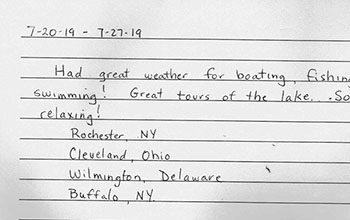 7-20-19 - 7-27-19
Had great weather for boating, fishin
swimming! Great tours of the lake. .So
relaxing!
Rochester, NY
Cleveland, Ohio
Wilmington, Delaware
Buffalo, NY.